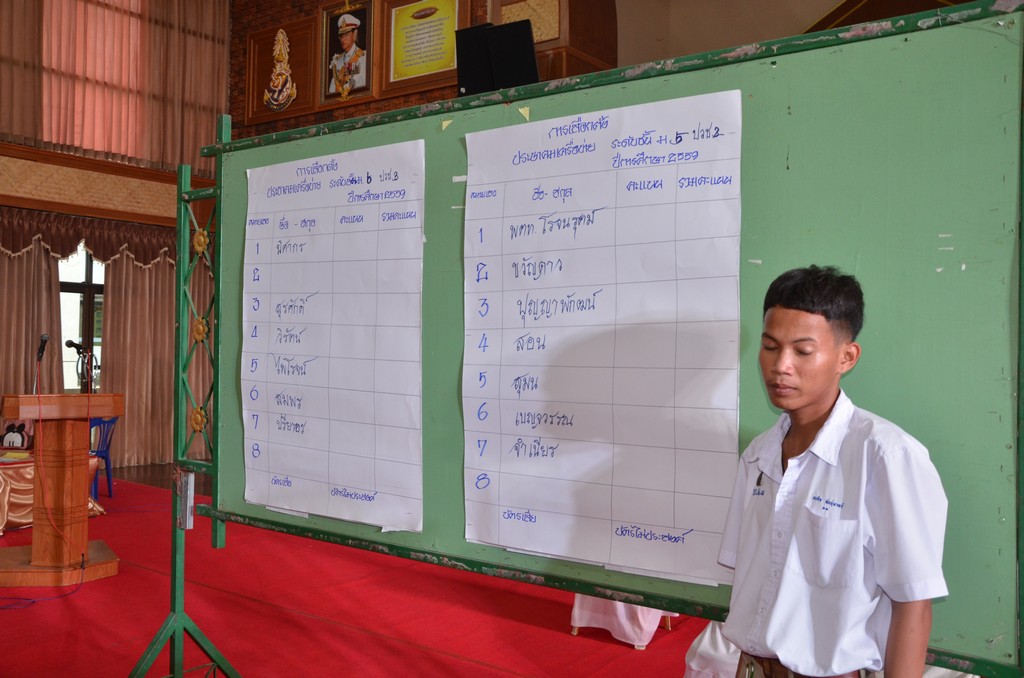 การเลือกตั้ง
ประธานเครือข่าย ระดับชั้น ม 6 ปวช.3
ปีการศึกษา 2559
หมายเลข ชื่อ - สกุล คะแนน รวมคะแนน
1 นิศากร
2
3 สุรศักดิ์
4 วิรัตน์
5 ไพโรจน์
6 สมพร
7 ปรียาอร
8
บัตรเสีย บัตรไม่ประสงค์
การเลือกตั้ง
ประธานเครือข่าย ระดับชั้น ม 5 ปวช.2
ปีการศึกษา 2559
หมายเลข ชื่อ - สกุล คะแนน รวมคะแนน
1 พตท. โรจนวุฒม์
2 ขวัญดาว
3
4 สอน
5 สุมน
6 เบญจวรรณ
7 จำเนียร
8
บัตรเสีย บัตรไม่ประสงค์